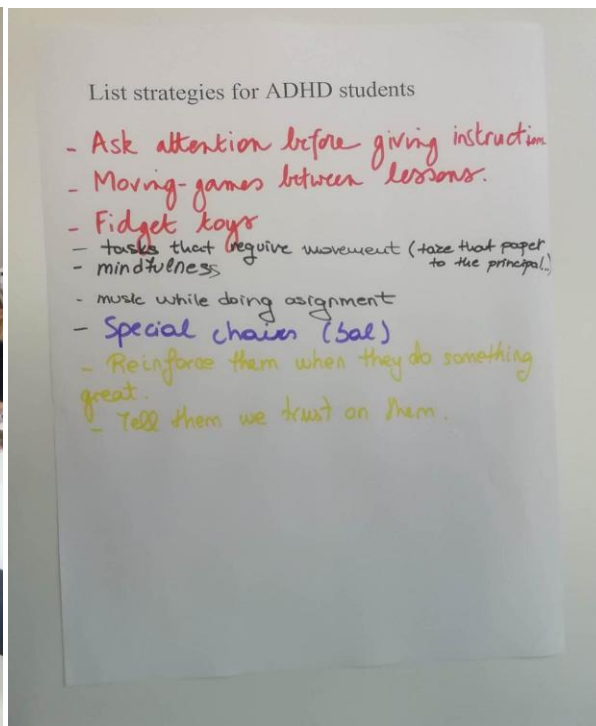 List strategies for ADHD students
- Ask attention before giving instruction
- Moving-games between lessons.
- Fidget toys
- tasks that require movement (take that paper
to the principal..)
- mindfulness
- music while doing asignment
- Special chairs (bal)
- Reinforce them when they do something
great.
- Tell them we trust on them.